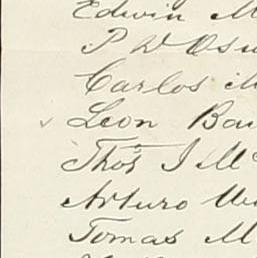 Edwin M
P W Osu
Carlos
Leon Bau
Thos J Mc
Arturo
Tomas M